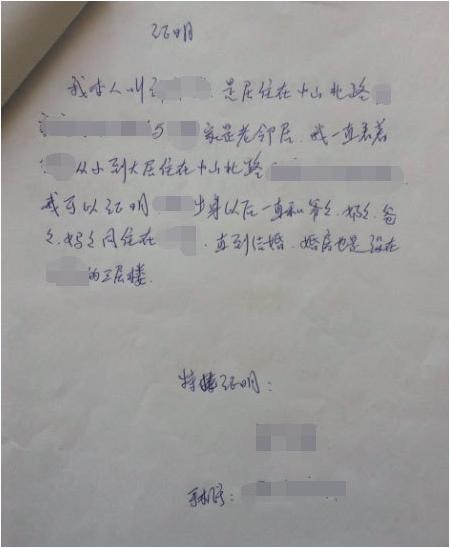 证明
我本人叫 是居住在中山北路
与 家是老邻居.我一直看着
从小到大居住在中山北路
我可以证明 出身以后一直和爷々、奶々、爸
々、妈々同住在 .直到结婚.婚房也是设在
的三层楼.
特 证明:
手机号: